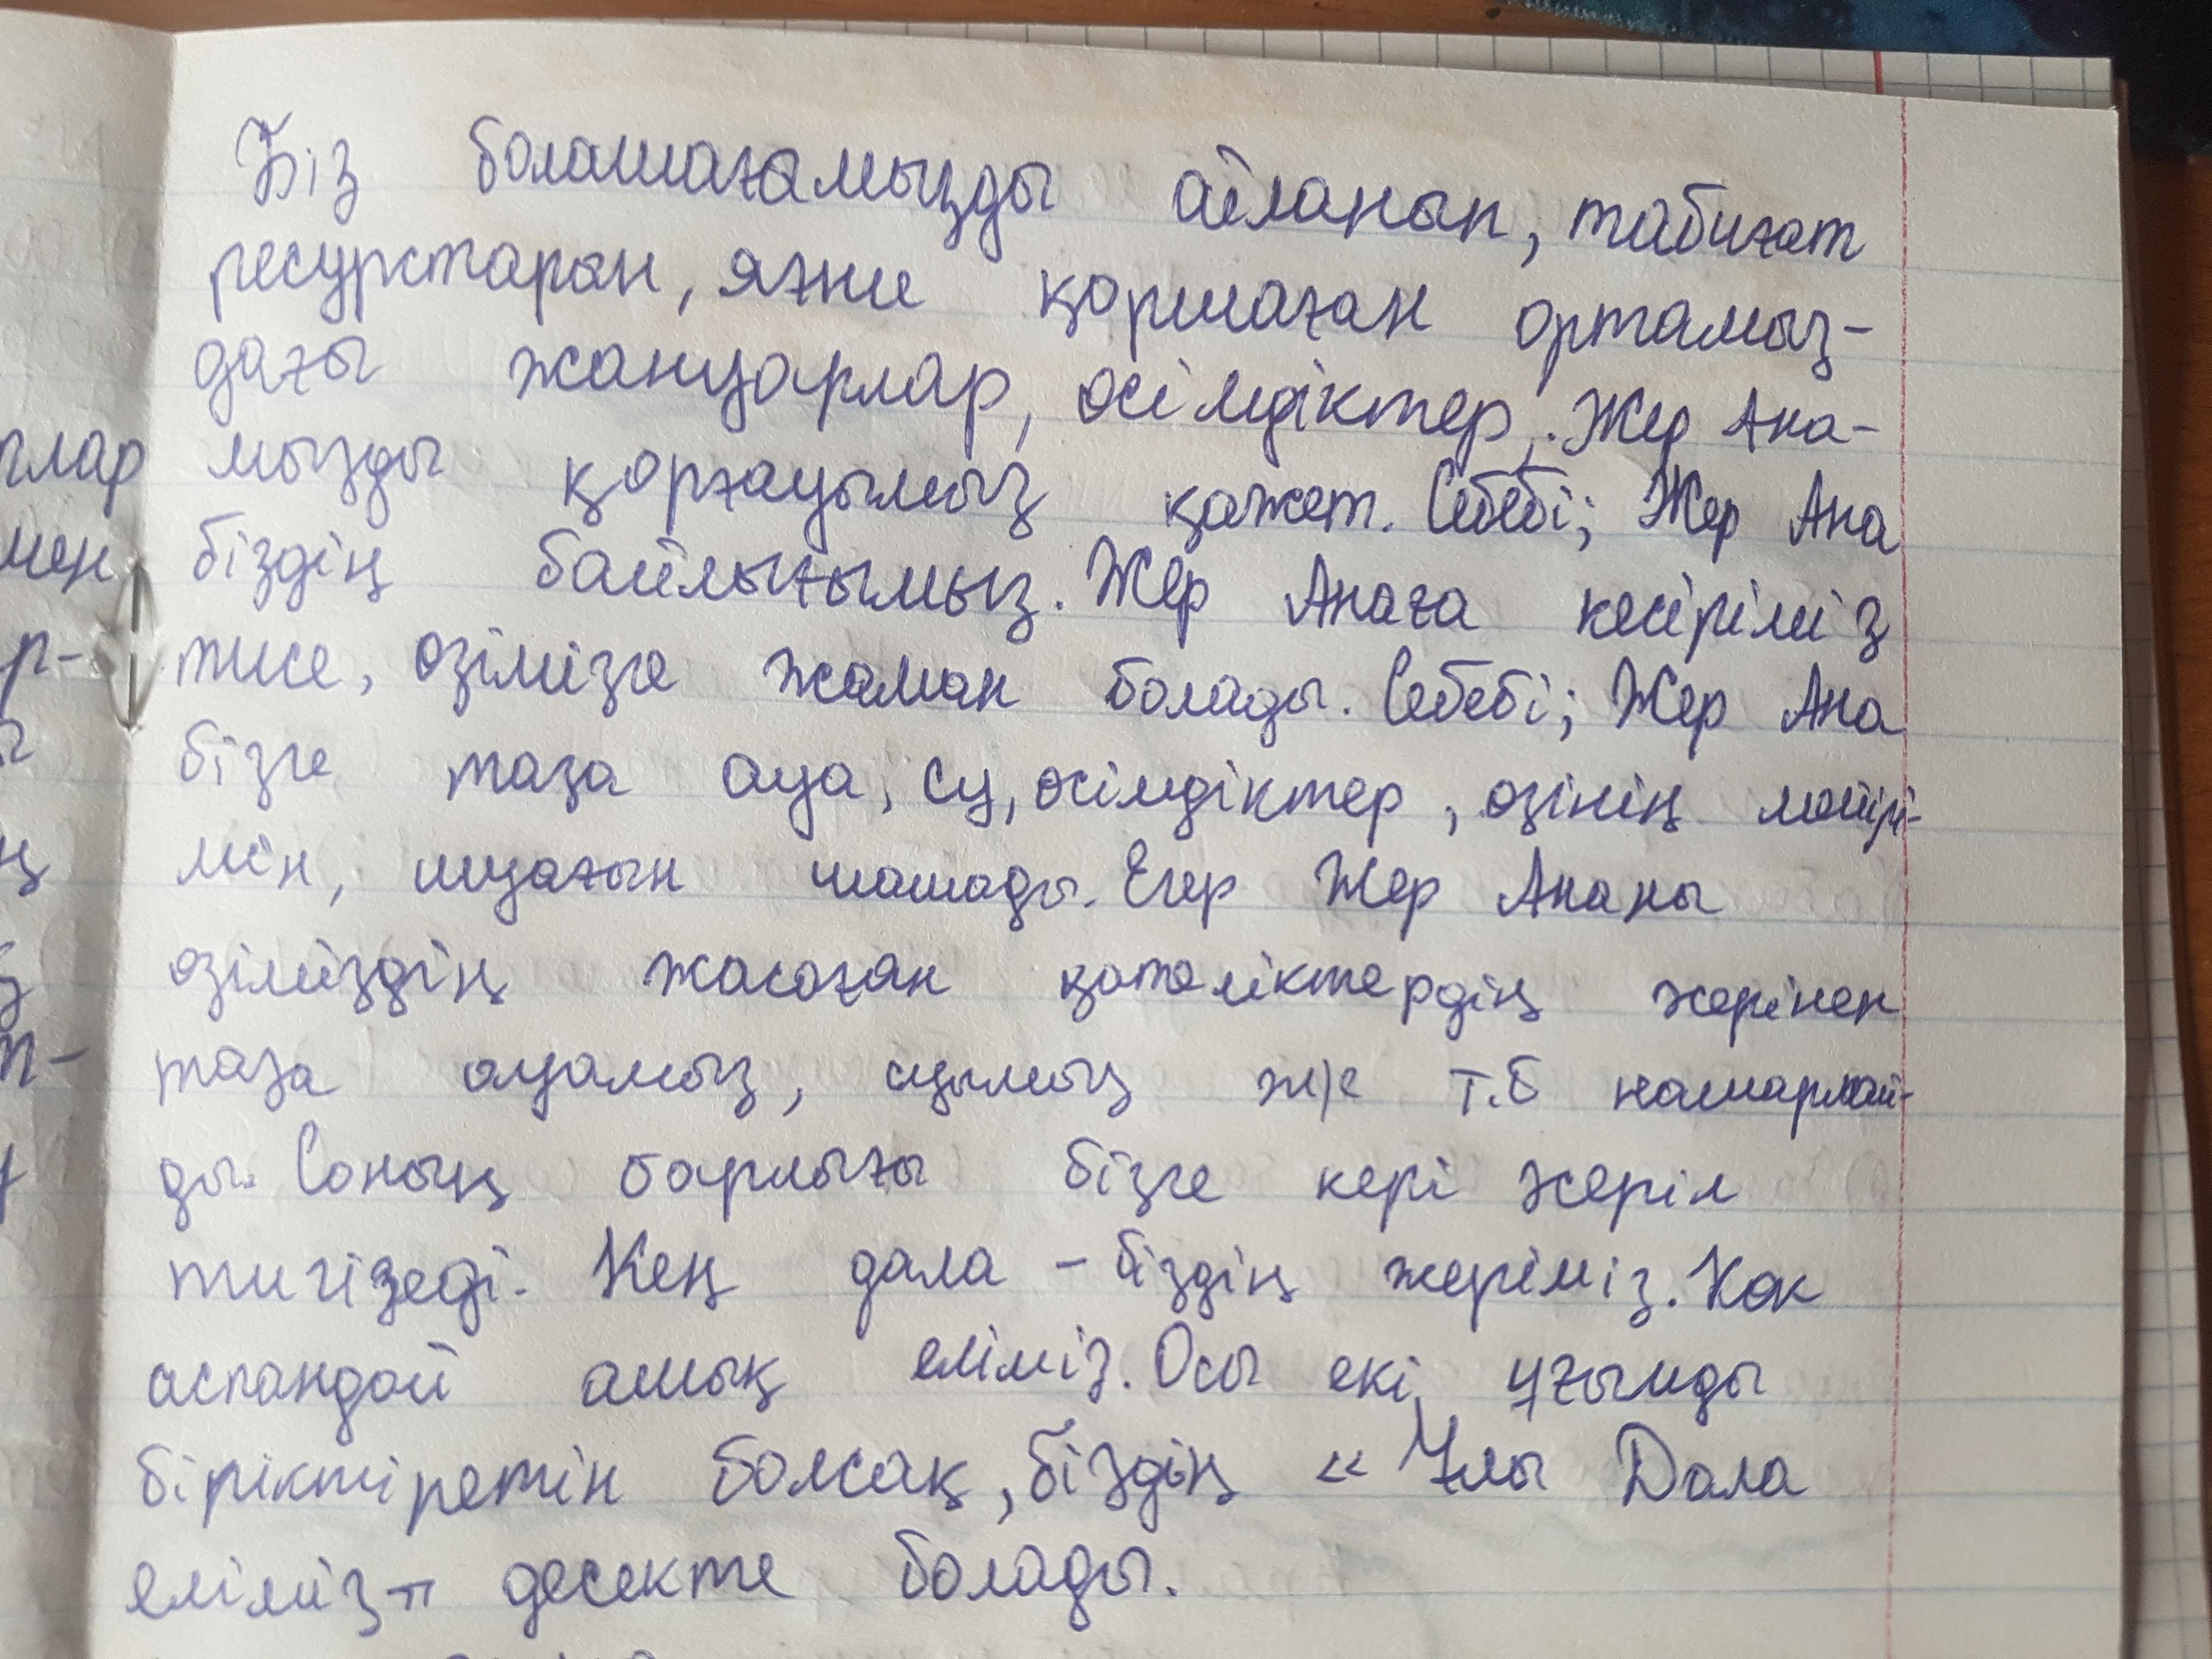 Біз болашағамызды ойланып, табиғат
ресурстарын, яғни қоршаған ортамыз-
дағы жануарлар, өсімдіктер, Жер Ана-
мызды қорғауымыз қажет. Себебі; Жер Ана
біздің байлығымыз. Жер Анаға кесіріміз
тисе, өзімізге жаман болады. Себебі; Жер Ана
бізге таза ауа, су, өсімдіктер, өзінің мейірі-
мін, шуағын шашады. Егер Жер Ананы
өзіміздің жасаған қателіктердің жерінен
таза ауамыз, суымыз ж/е т.б нашарлай-
ды. Соның барлығы бізге кері жеріп
тигізеді. Кең дала - біздің жеріміз. Көк
аспандай ашық еліміз. Осы екі ұғымды
біріктіретін болсақ, біздің «Ұлы Дала
еліміз" десекте болады.